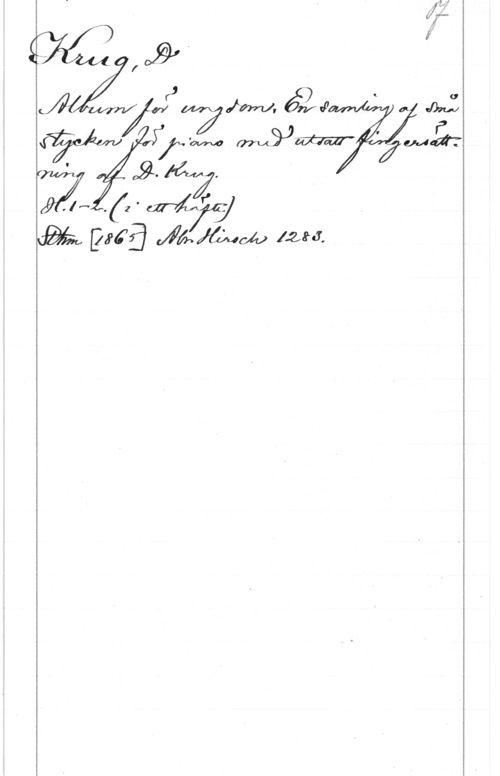 Krug, D
Album för ungdom. En samling af små
stycken för piano med utsatt fingersätt-
ning af D. Krug.
H. 1-2. (i ett häfte)
Sthm [1865] Abr. Hirsch 1283.